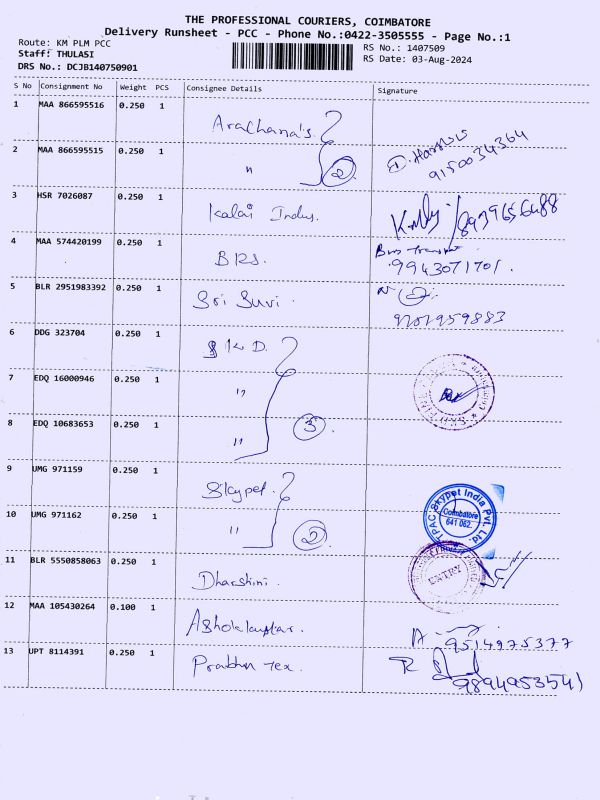 THE PROFESSIONAL COURIERS, COIMBATORE
Delivery Runsheet - PCC - Phone No.:0422-3505555 - Page No.:1
Route: KM PLM PCC
RS No.: 1407509
Staff: THULASI
RS Date: 03-Aug-2024
DRS No.: DCJB140750901
S No Consignment No Weight PCS Consignee Details Signature
1 MAA 866595516 0.250 1 Arachana's
2 MAA 866595515 0.250 1 " 2 9150034364
3 HSR 7026087 0.250 1 Kalai Indus. 8939656488
4 MAA 574420199 0.250 1 BRS. 9943071701.
5 BLR 2951983392 0.250 1 Sri Suvi.
6 DDG 323704 0.250 1 SKD.
7 EDQ 16000946 0.250 1 "
8 EDQ 10683653 0.250 1 " 3
9 UMG 971159 0.250 1 Skypet.
TPAC Skypet India Pvt. Ltd
Coimbatore
641 062.
10 UMG 971162 0.250 1 " 2
11 BLR 5550858063 0.250 1 Dharshini.
ENTRY
12 MAA 105430264 0.100 1 Ashokkumar. 9514975377
13 UPT 8114391 0.250 1 Prabhu Tex. 9894953541